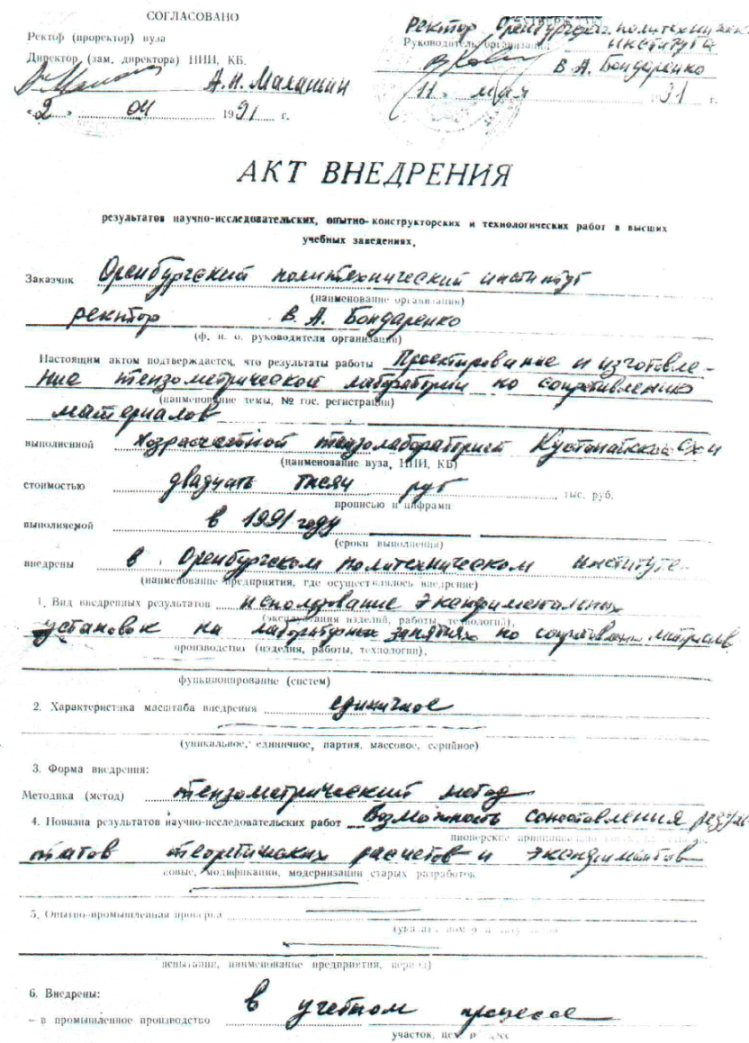 СОГЛАСОВАНО
Ректор (проректор) вуза
Директор (зам. директора) НИИ, КБ.
А.Н. Малашин
«2» 04 1991 г.
Ректор Оренбургск. политехническ.
института
Руководитель организации
В.А. Бондаренко
11 мая г.
АКТ ВНЕДРЕНИЯ
результатов научно-исследовательских, опытно-конструкторских и технологических работ в высших
учебных заведениях,
Заказчик Оренбургский политехнический институт
(наименование организации)
ректор В.А. Бондаренко
(ф. и. о. руководителя организации)
Настоящим актом подтверждается, что результаты работы Проектирование и изготовле-
ние тензометрической лаборатории по сопротивлению
(наименование темы, № гос. регистрации)
материалов
выполненной хозрасчетной тензолабораторией
(наименование вуза, НИИ, КБ)
стоимостью двадцать тысяч руб тыс. руб.
прописью и цифрами
выполняемой в 1991 году
(сроки выполнения)
внедрены в Оренбургском политехническом институте
(наименование предприятия, где осуществлялось внедрение)
1. Вид внедренных результатов использование экспериментальных
(эксплуатация изделий, работы, технологий),
установок на лабораторных занятиях по материалов
производство (изделия, работы, технологии),
функционирование (систем)
2. Характеристика масштаба внедрения единичное
(уникальное, единичное, партия, массовое, серийное)
3. Форма внедрения:
Методика (метод) тензометрический метод
4. Новизна результатов научно-исследовательских работ Возможность сопоставления резуль-
пионерские
татов теоретических расчетов и экспериментов
модификации, модернизации старых разработок
5. Опытно-промышленная проверка
испытания, наименование предприятия, период)
6. Внедрены:
в учебном процессе
– в промышленное производство
участок, цех